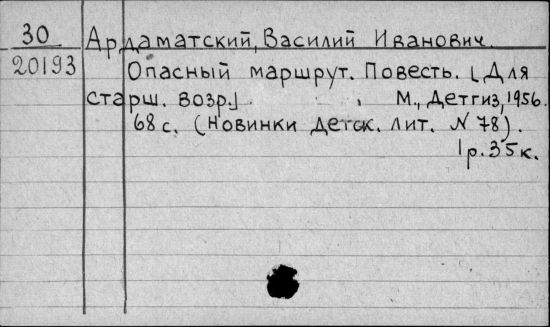 30 Ардаматский, Василий Иванович.
20193 Опасный маршрут. Повесть. [Для
старш. возр.] М., Детгиз, 1956.
68 с. (Новинки детск. лит. N 78).
1 р. 35 к.